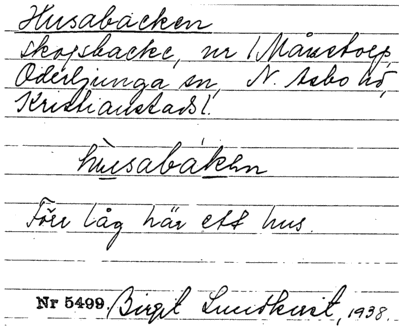 Husabacken
skogsbacke, nr 1 Månstorp,
Oderljunga sn, N. Åsbo hd,
Kristianstads l.
husabákен
Förr låg här ett hus.
Nr 5499. Birgit Lundkvist, 1938.